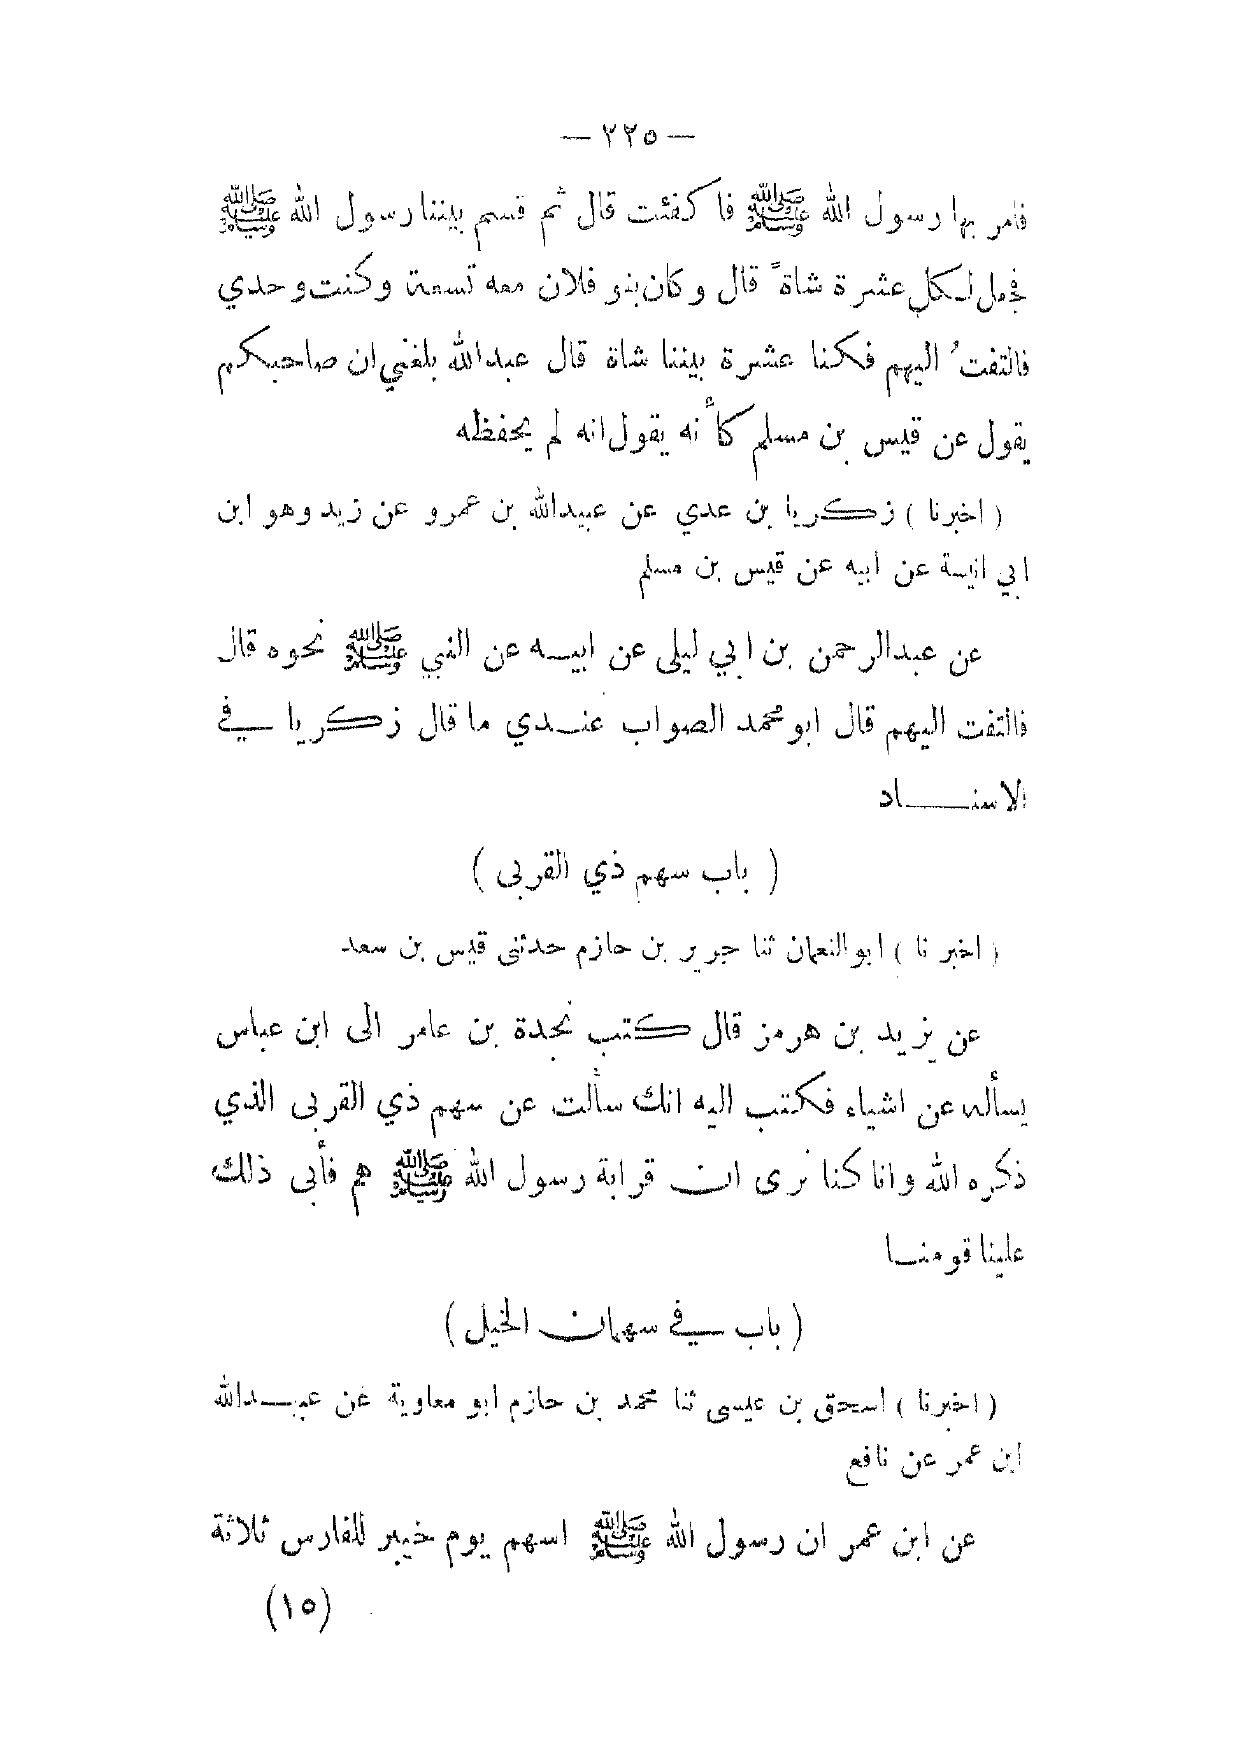 — ٢٢٥ —
فامر بها رسول الله ﷺ فا كفئت قال ثم قسم بيننا رسول الله ﷺ
فجعل لكل عشرة شاة ً قال وكان بنو فلان معه تسعة وكنت وحدي
فالتفتُ اليهم فكنا عشرة بيننا شاة قال عبدالله بلغني ان صاحبكم
يقول عن قيس بن مسلم كأنه يقول انه لم يحفظه
( اخبرنا ) زكريا بن عدي عن عبيدالله بن عمرو عن زيد وهو ابن
ابي انيسة عن ابيه عن قيس بن مسلم
عن عبدالرحمن بن ابي ليلى عن ابيه عن النبي ﷺ نحوه قال
فالتفت اليهم قال ابومحمد الصواب عندي ما قال زكريا في
الاسناد
( باب سهم ذي القربى )
( اخبرنا ) ابوالنعمان ثنا جرير بن حازم حدثنى قيس بن سعد
عن يزيد بن هرمز قال كتب نجدة بن عامر الى ابن عباس
يسأله عن اشياء فكتب اليه انك سألت عن سهم ذي القربى الذي
ذكره الله وانا كنا نرى ان قرابة رسول الله ﷺ هم فأبى ذلك
علينا قومنا
( باب في سهمان الخيل )
( اخبرنا ) اسحق بن عيسى ثنا محمد بن حازم ابو معاوية عن عبيدالله
ابن عمر عن نافع
عن ابن عمر ان رسول الله ﷺ اسهم يوم خيبر للفارس ثلاثة
(١٥)